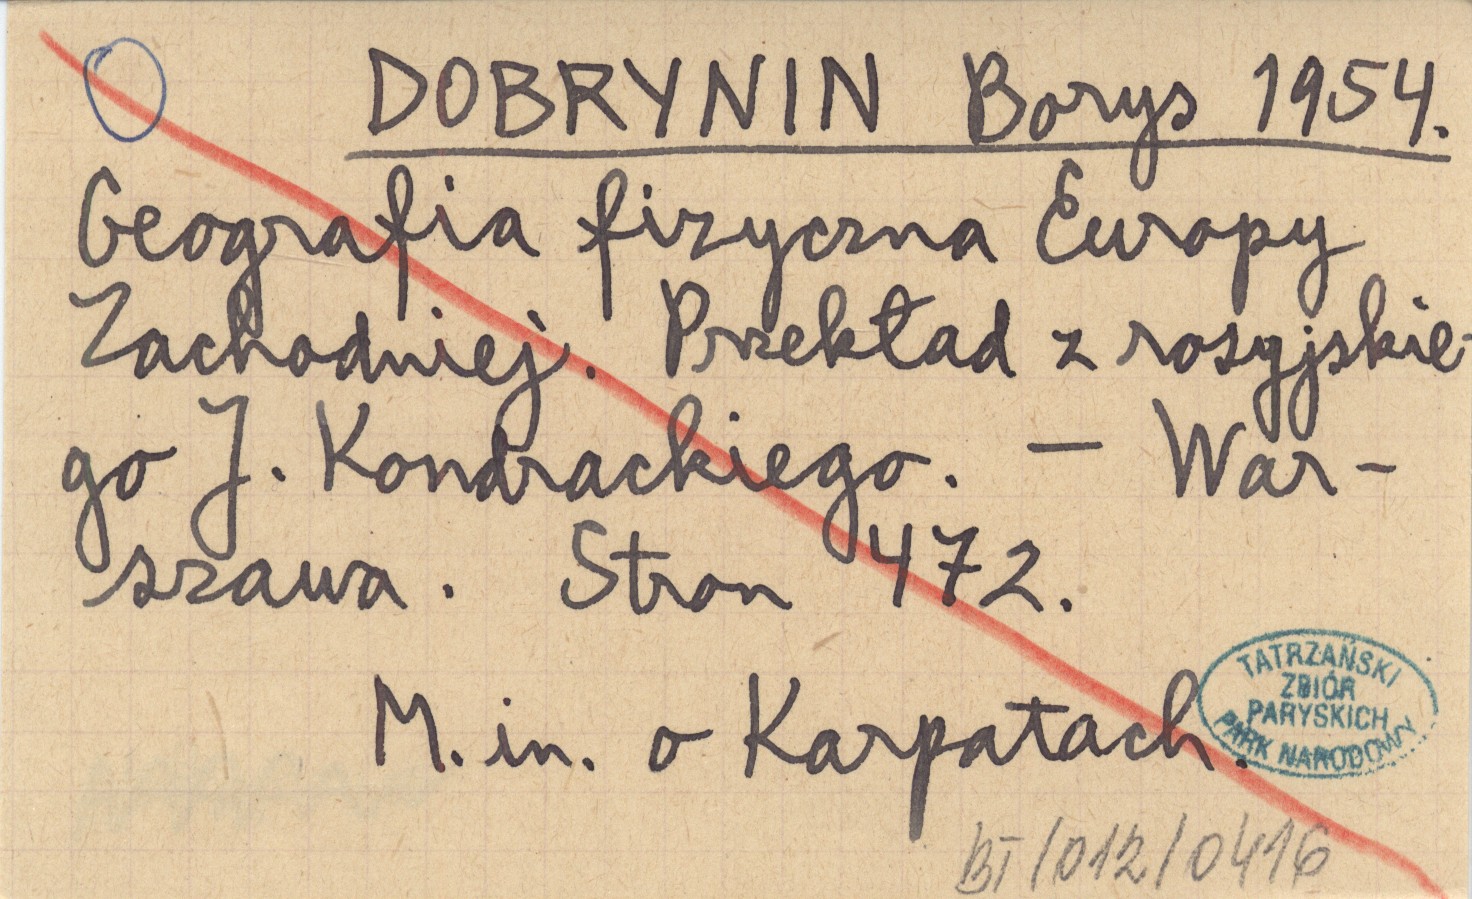 DOBRYNIN Borys 1954.
Geografia fizyczna Europy
Zachodniej. Przekład z rosyjskie-
go J. Kondrackiego. — War-
szawa. Stron 472.
M. in. o Karpatach.
TATRZAŃSKI
ZBIÓR
PARYSKICH
PARK NARODOWY
BT/012/0416